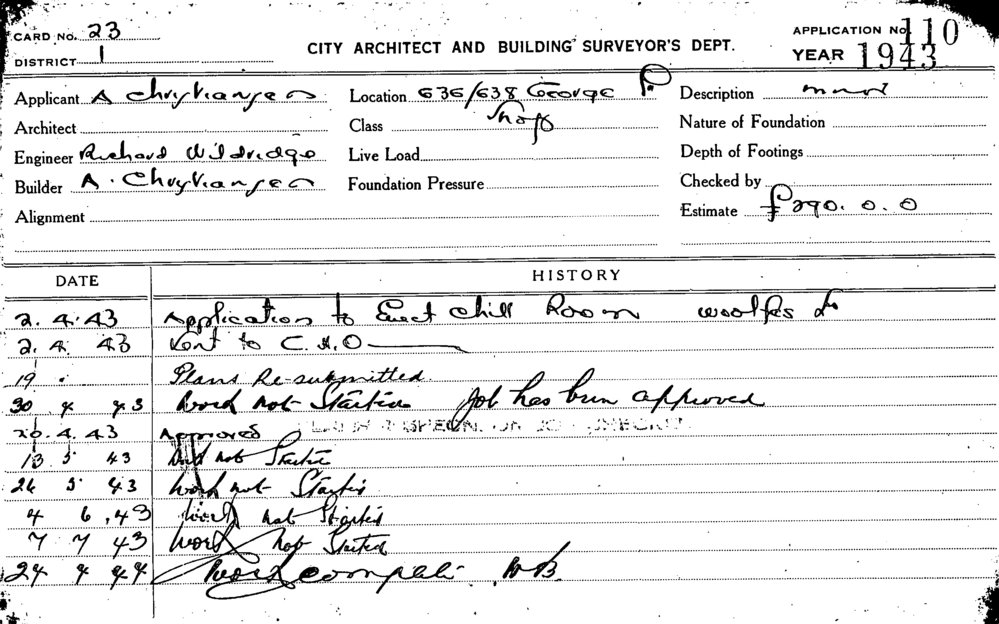 CARD No. 23
APPLICATION No. 110
CITY ARCHITECT AND BUILDING SURVEYOR'S DEPT.
DISTRICT 1
YEAR 1943
Applicant A Christiansen Location 636/638 George Description
Architect Class Shops Nature of Foundation
Engineer Richard Wildridge Live Load Depth of Footings
Builder A. Christiansen Foundation Pressure Checked by
Alignment Estimate £290. 0. 0
DATE HISTORY
2. 4. 43 Application to Erect Chill Room
2. 4. 43 Sent to C.H.O
19 Plans Re-submitted
30 4 43 Work not Started Job has been approved
20. 4. 43 Approved
13 5 43 Work not Started
26 5 43 Work not Started
4 6. 43 Work not Started
7 7 43 Work not Started
24 4 44 Work complete